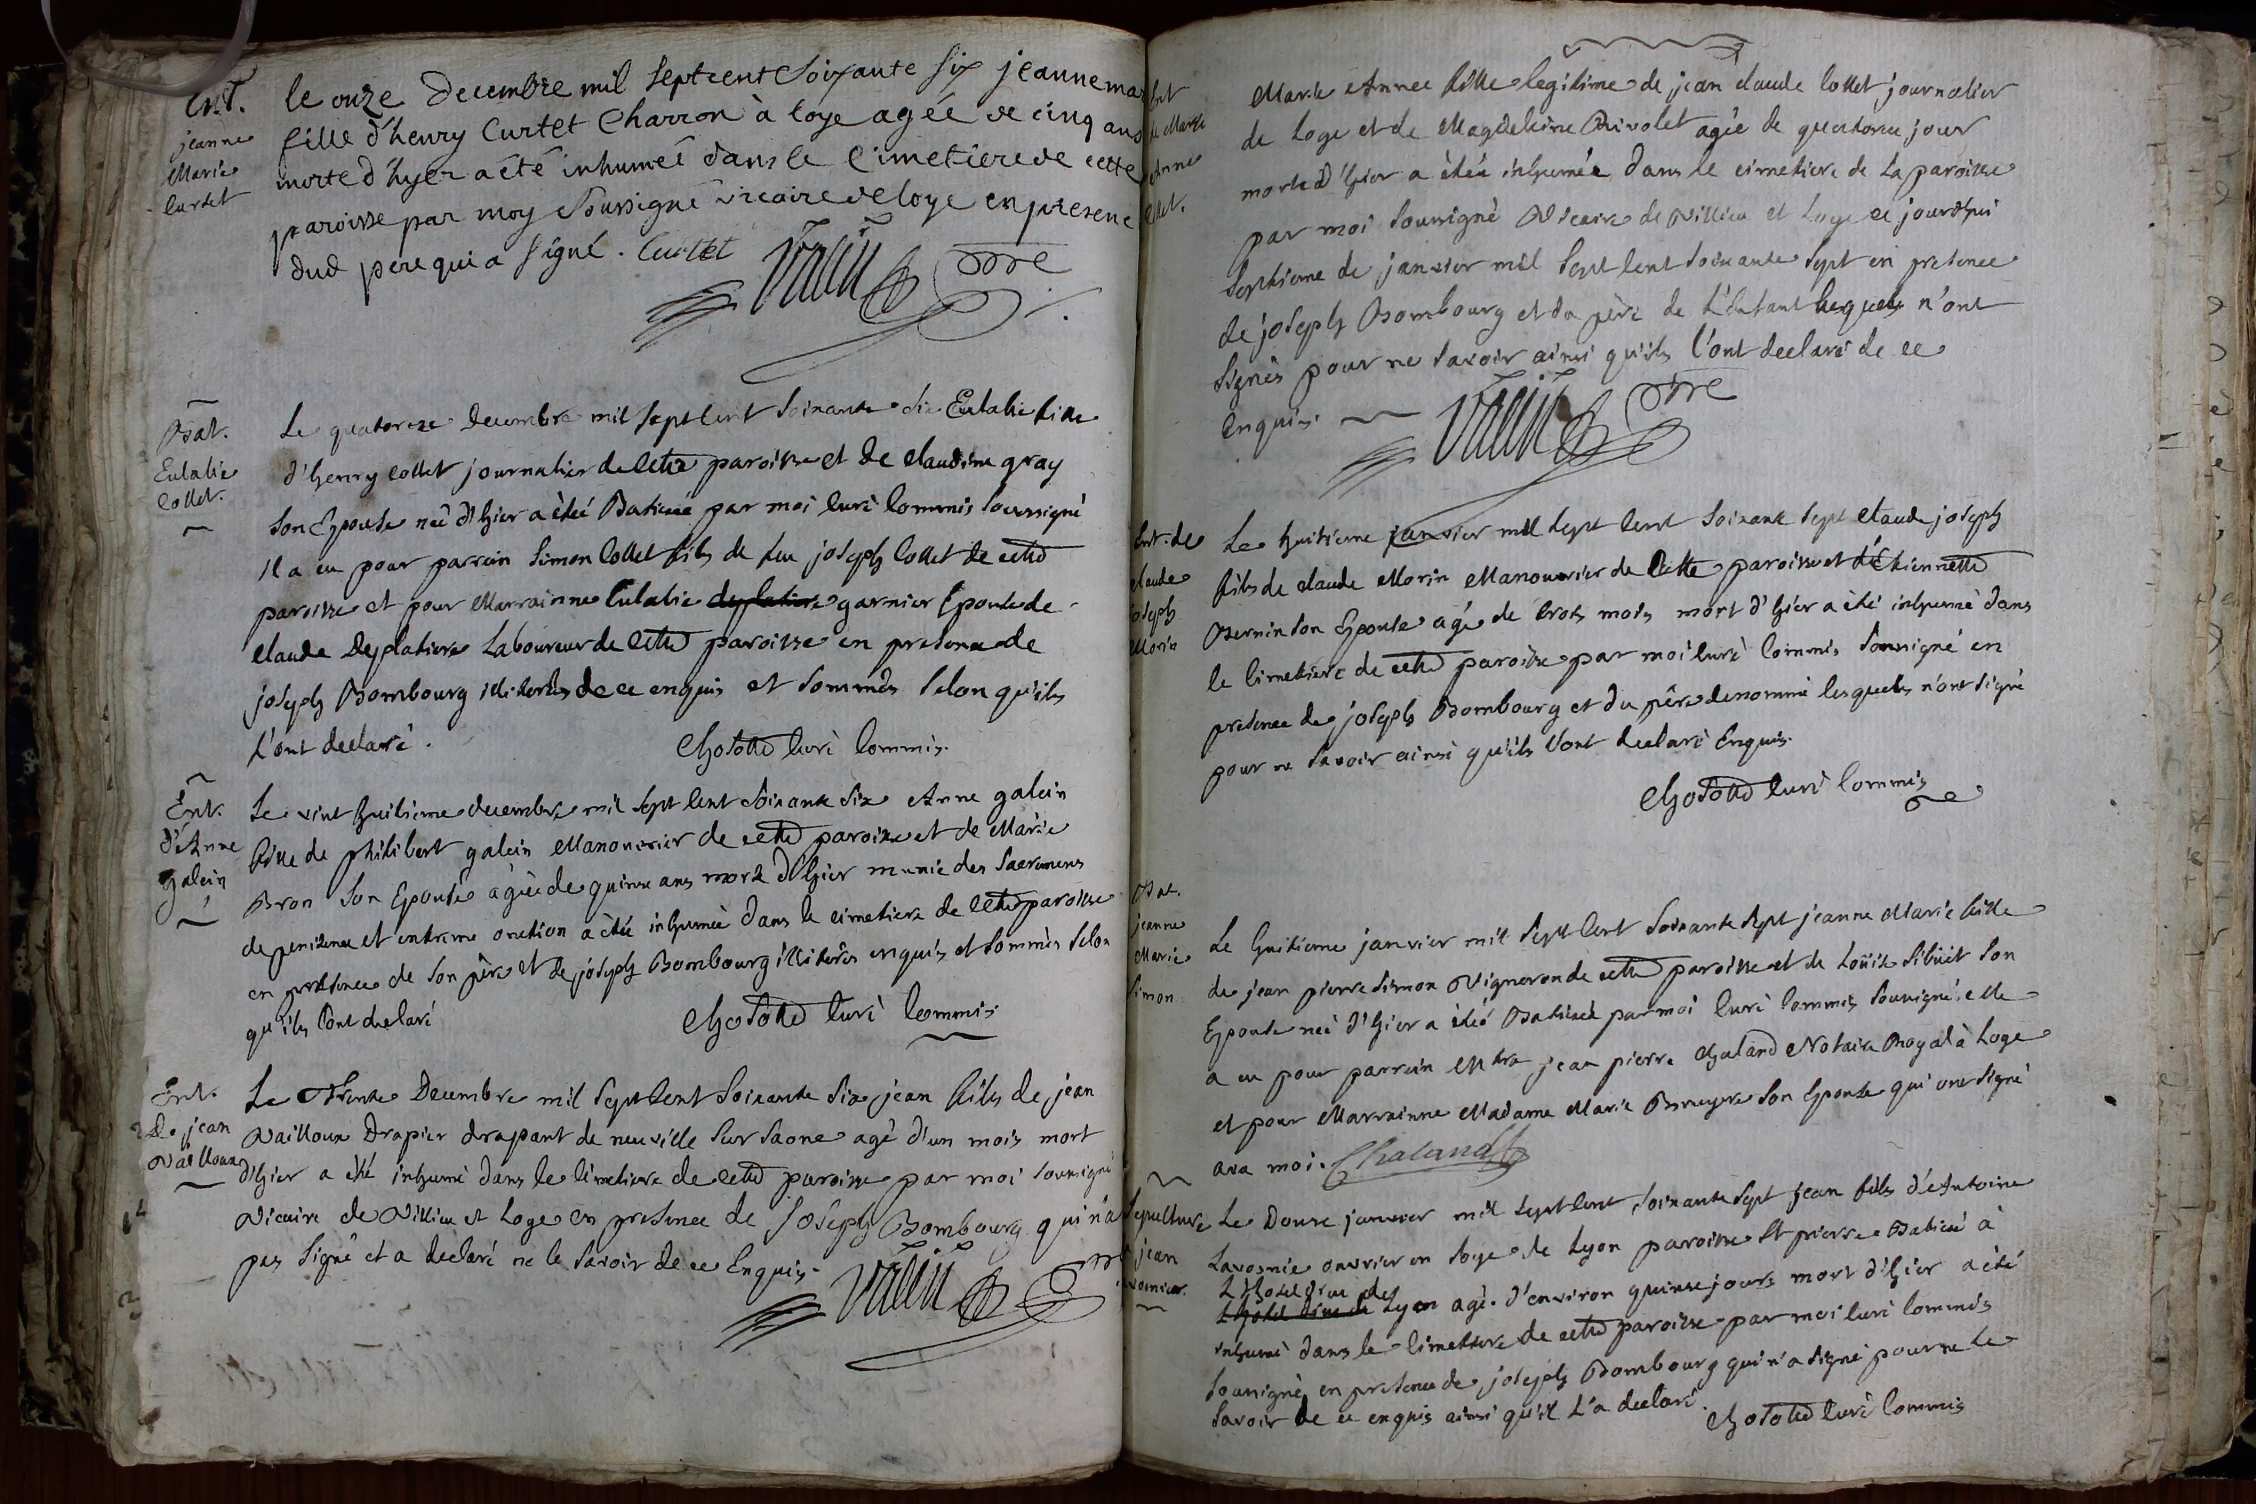 Ent.
jeanne
Marie
Curtet
le onze decembre mil septcent soixante six jeanne ma
fille d'henry Curtet Charron à loye agéé de cinq ans
morte d'hyer a été inhumeé dans le cimetiere de cette
paroisse par moy soussigné vicaire de loye en presenc
dud pere qui a signé. Curtet
Bat.
Eulalie
Collet.
Le quatorze decembre mil sept cent soixante six Eulalie fille
d'henry collet journalier de cette paroisse et de claudine gray
son Epouse neé d'hier a étéé Batiseé par moi curé commis soussigné
il a eu pour parrain simon Collet fils de feu joseph Collet de cette
paroisse et pour Marrainne Eulalie deplatiere garnier Epouse de
claude Deplatiere Laboureur de cette paroisse en presence de
joseph Bombourg illiterés de ce enquis et sommés selon qu'ils
l'ont declaré.
Chosotte curé commis.
Ent.
d'Anne
galein
Le vint huitieme decembre mil sept cent soixante six Anne galein
fille de philibert galein Manouvrier de cette paroisse et de Marie
Bron son Epouse agéé de quinze ans morte d'hier munie des sacremens
de penitence et extreme onction a étéé inhumeé dans le cimetiere de cette paroisse
en presence de son père et de joseph Bombourg illiterés enquis et sommés selon
qu'ils l'ont declaré
Chosotte curé commis
Ent.
De jean
Vailloux
Le Trente Decembre mil sept cent soixante six jean fils de jean
Vailloux Drapier drapant de neuville sur saone agé d'un mois mort
d'hier a été inhumé dans le cimetiere de cette paroisse par moi soussigné
Vicaire de Villieu et Loye en presence de joseph Bombourg qui n'a
pas signé et a declaré ne le savoir de ce Enquis.
Ent
de Marie
Anne
Collet.
Marie Annee fille legitime de jean claude Collet journalier
de Loye et de Magdeleine Rivolet agée de quatorze jour
morte d'hier a étéé inhumée dans le cimetiere de la paroisse
par moi soussigné Vicaire de Villieu et Loye ce jourd'hui
septieme de janvier mil sept cent soixante sept en presence
de joseph Bombourg et du père de L'enfant lesquels n'ont
signés pour ne savoir ainsi qu'ils l'ont declaré de ce
Enquis.
Ent. de
claude
joseph
Morin
Le huitieme janvier mil sept cent soixante sept claude joseph
fils de claude Morin Manouvrier de Cette paroisse et d'Etiennette
Bernin son Epouse agé de trois mois mort d'hier a été inhumé dans
le cimetiere de cette paroisse par moi curé commis soussigné en
presence de joseph Bombourg et du père denommé lesquels n'ont signé
pour ne savoir ainsi qu'ils l'ont declaré Enquis.
Chosotte curé commis
Bat.
jeanne
Marie
simon.
Le huitieme janvier mil sept cent soixante sept jeanne Marie fille
de jean pierre simon Vigneron de cette paroisse et de Loüise sibüet son
Epouse neé d'hier a étéé Batiseé par moi curé commis soussigné. elle
a eu pour parrain Mtre jean pierre Chaland Notaire Royal à Loye
et pour Marrainne Madame Marie Bruyere son Epouse qui ont signé
avec moi. Chaland
Sepulture
jean
Le Douze janvier mil sept cent soixante sept jean fils d'Antoine
Lavosnie ouvrier en soye de Lyon paroisse st pierre Batisé à
L'hotel Dieu de
L'hotel Dieu de Lyon agé d'environ quinze jours mort d'hier a été
inhumé dans le cimetiere de cette paroisse par moi curé commis
soussigné en presence de joseph Bombourg qui n'a signé pour ne le
savoir de ce enquis ainsi qu'il l'a declaré.
Chosotte curé commis